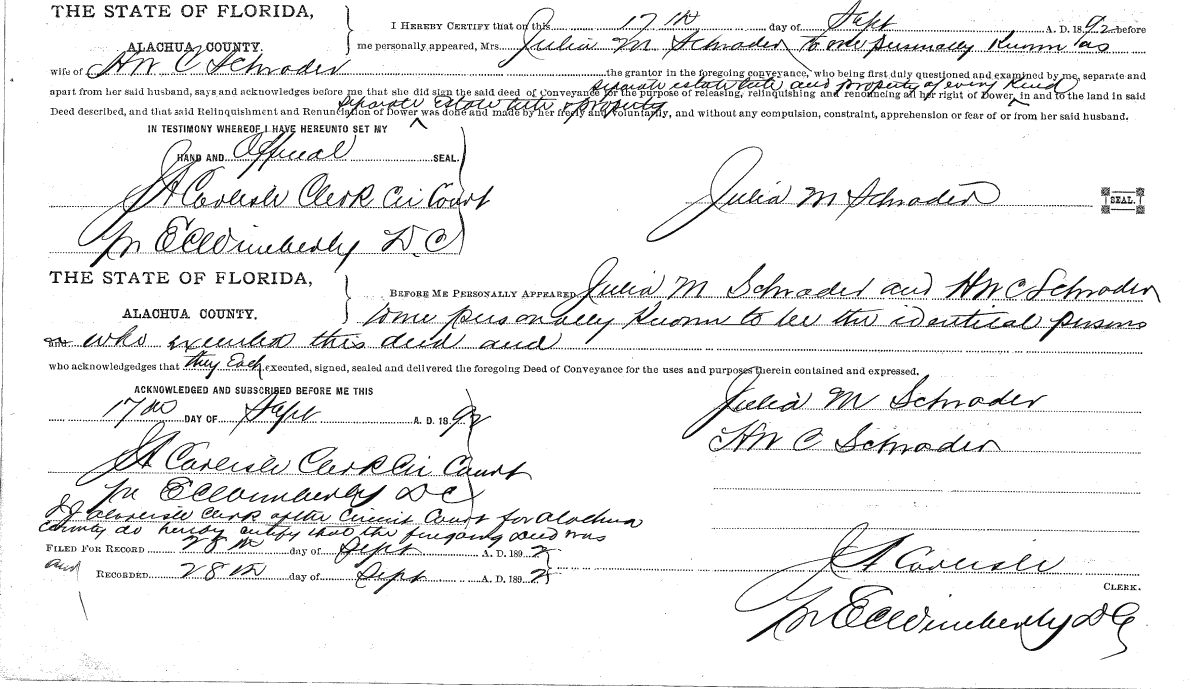 THE STATE OF FLORIDA,
ALACHUA COUNTY.
I HEREBY CERTIFY that on this 17th day of Sept A. D. 1892 before
me personally appeared, Mrs. Julia M Schrader to me personally known as
wife of HWC Schrader the grantor in the foregoing conveyance, who being first duly questioned and examined by me, separate and
separate estate and property of every kind
apart from her said husband, says and acknowledges before me that she did sign the said deed of Conveyance for the purpose of releasing, relinquishing and renouncing all her right of Dower, in and to the land in said
separate estate property
Deed described, and that said Relinquishment and Renunciation of Dower was done and made by her freely and voluntarily, and without any compulsion, constraint, apprehension or fear of or from her said husband.
IN TESTIMONY WHEREOF I HAVE HEREUNTO SET MY
HAND AND Official SEAL.
Carlisle Clerk Cir Court
Julia M Schrader SEAL.
Pr E C Wimberly D.C
THE STATE OF FLORIDA,
ALACHUA COUNTY.
BEFORE ME PERSONALLY APPEARED Julia M Schrader and HWC Schrader
to me personally known to be the identical persons
who executed this deed and
who acknowledges that they Each executed, signed, sealed and delivered the foregoing Deed of Conveyance for the uses and purposes therein contained and expressed.
ACKNOWLEDGED AND SUBSCRIBED BEFORE ME THIS
17th DAY OF Sept A. D. 1892
Julia M Schrader
HWC Schrader
Carlisle Clerk Cir Court
Pr E C Wimberly DC
Carlisle Clerk of the Circuit Court for Alachua
County do hereby certify that the foregoing deed was
FILED FOR RECORD 28th day of Sept A. D. 1892
and
RECORDED 28th day of Sept A. D. 1892
Carlisle
CLERK.
Pr E C Wimberly DC